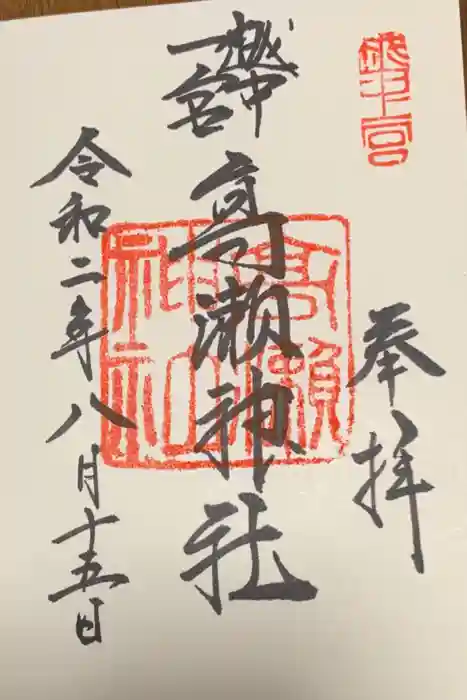 奉拝
越中
一宮
高瀬神社
令和二年八月十五日
高瀬
神社